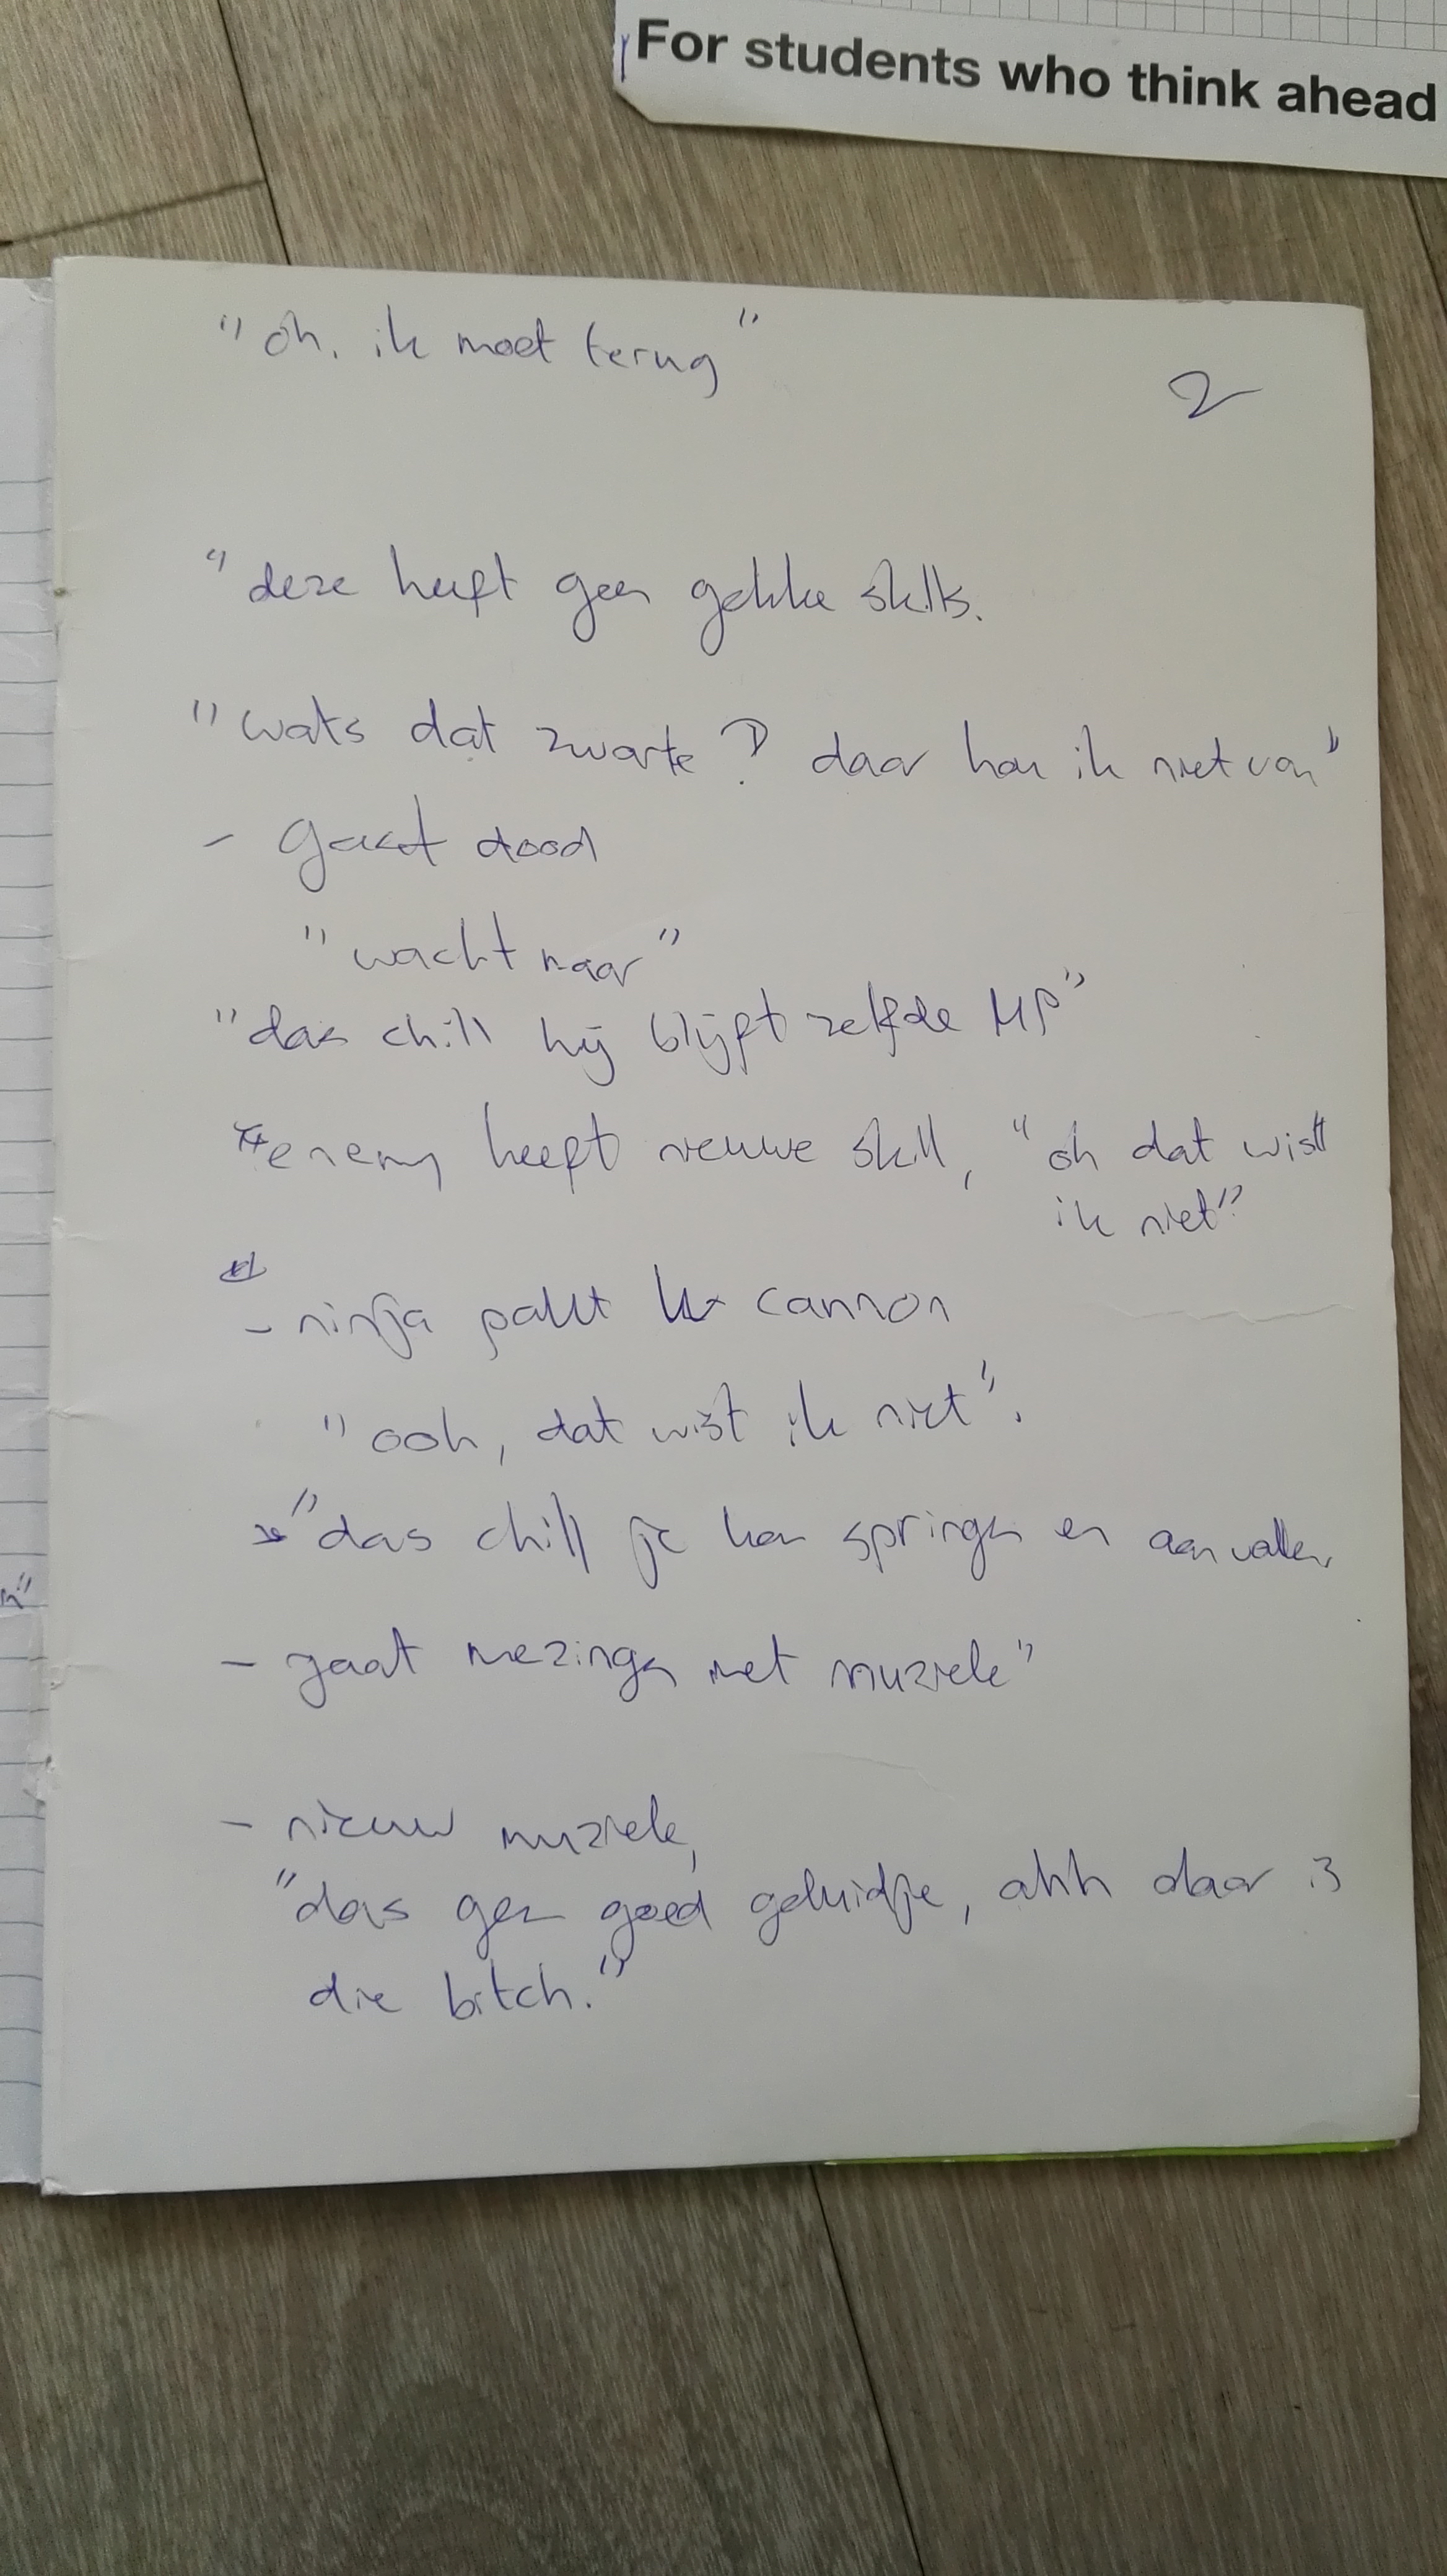 For students who think ahead
"oh, ik moet terug"
2
"deze heeft geen gekke skills.
"wats dat zwarte? daar hou ik niet van"
- gaat dood
"wacht maar"
"das chill hij blijft zelfde HP"
enemy heeft nieuwe skill, "oh dat wist
ik niet"
- ninja pakt cannon
"ooh, dat wist ik niet".
"das chill je kan springen en aanvallen,
- gaat meezingen met muziek"
- nieuw muziek,
"das een goed geluidje, ahh daar is
die bitch."